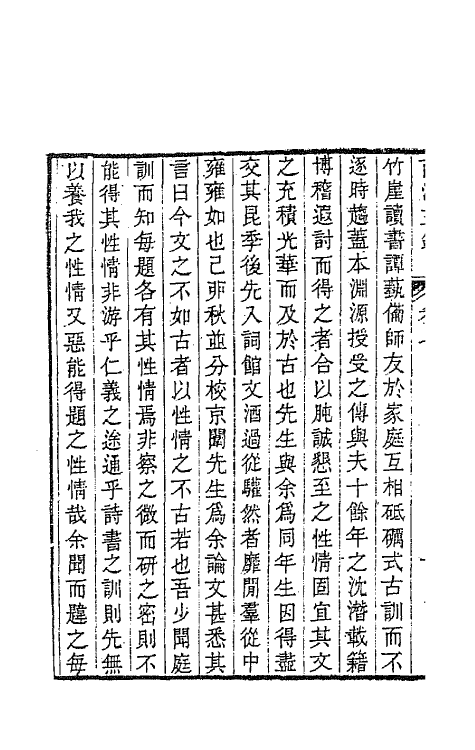 竹崖讀書譚藝備師友於家庭互相砥礪式古訓而不
逐時趨蓋本淵源授受之傳與夫十餘年之沈潛載籍
博稽遐討而得之者合以肫誠懇至之性情固宜其文
之充積光華而及於古也先生與余爲同年生因得盡
交其昆季後先入詞館文酒過從驩然者靡閒羣從中
雍雍如也己卯秋並分校京闈先生爲余論文甚悉其
言曰今文之不如古者以性情之不古若也吾少聞庭
訓而知每題各有其性情焉非察之微而研之密則不
能得其性情非游乎仁義之途通乎詩書之訓則先無
以養我之性情又惡能得題之性情哉余聞而韙之每